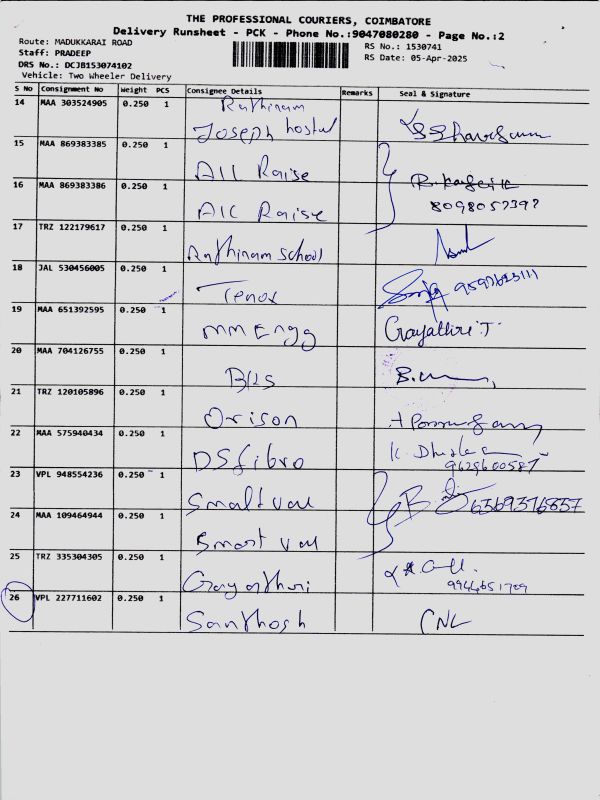 THE PROFESSIONAL COURIERS, COIMBATORE
Delivery Runsheet - PCK - Phone No.:9047080280 - Page No.:2
Route: MADUKKARAI ROAD
Staff: PRADEEP
DRS No.: DCJB153074102
Vehicle: Two Wheeler Delivery
RS No.: 1530741
RS Date: 05-Apr-2025
S No Consignment No Weight PCS Consignee Details Remarks Seal & Signature
14 MAA 303524905 0.250 1 Rathinam
Joseph hostel
15 MAA 869383385 0.250 1
All Raise
16 MAA 869383386 0.250 1
All Raise
8098057397
17 TRZ 122179617 0.250 1
Rathinam school
18 JAL 530456005 0.250 1
Tenox
19 MAA 651392595 0.250 1
MM Engg Gayathire T.
20 MAA 704126755 0.250 1
21 TRZ 120105896 0.250 1
Orison
22 MAA 575940434 0.250 1
DSfibro
9629600587
23 VPL 948554236 0.250 1
Smart val 6369376857
24 MAA 109464944 0.250 1
Smart val
25 TRZ 335304305 0.250 1
Gayathuri
9944651709
26 VPL 227711602 0.250 1
Santhosh CNL